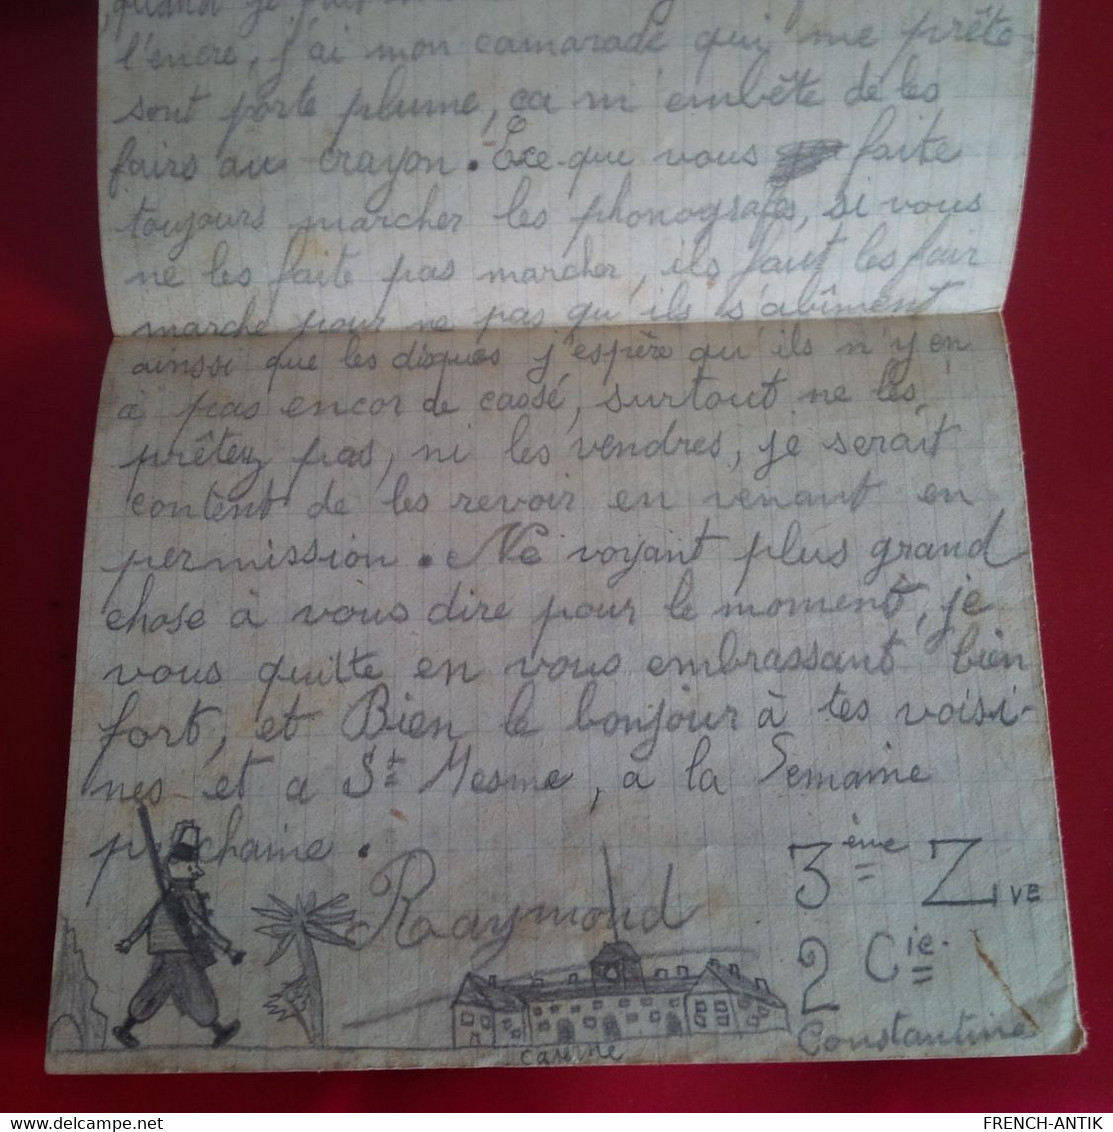 quand je
l'encre, j'ai mon camarade qui me prête
sont porte plume, ça m'embête de les
fairs au crayon. Ece-que vous faite
toujours marcher les phonografes, si vous
ne les faite pas marcher, ils faut les fair
marché pour ne pas qu'ils s'abîment
ainsi que les disques j'espère qu'ils n'y en
a pas encor de cassé, surtout ne les
prêtez pas, ni les vendres, je serait
content de les revoir en venant en
permission. Ne voyant plus grand
chose à vous dire pour le moment, je
vous quitte en vous embrassant bien
fort, et Bien le bonjour à tes voisi-
nes et a St Mesme, a la Semaine
prochaine.
Raymond
3ème Z IVE
2 Cie.
Constantine
caserne
FRENCH-ANTIK